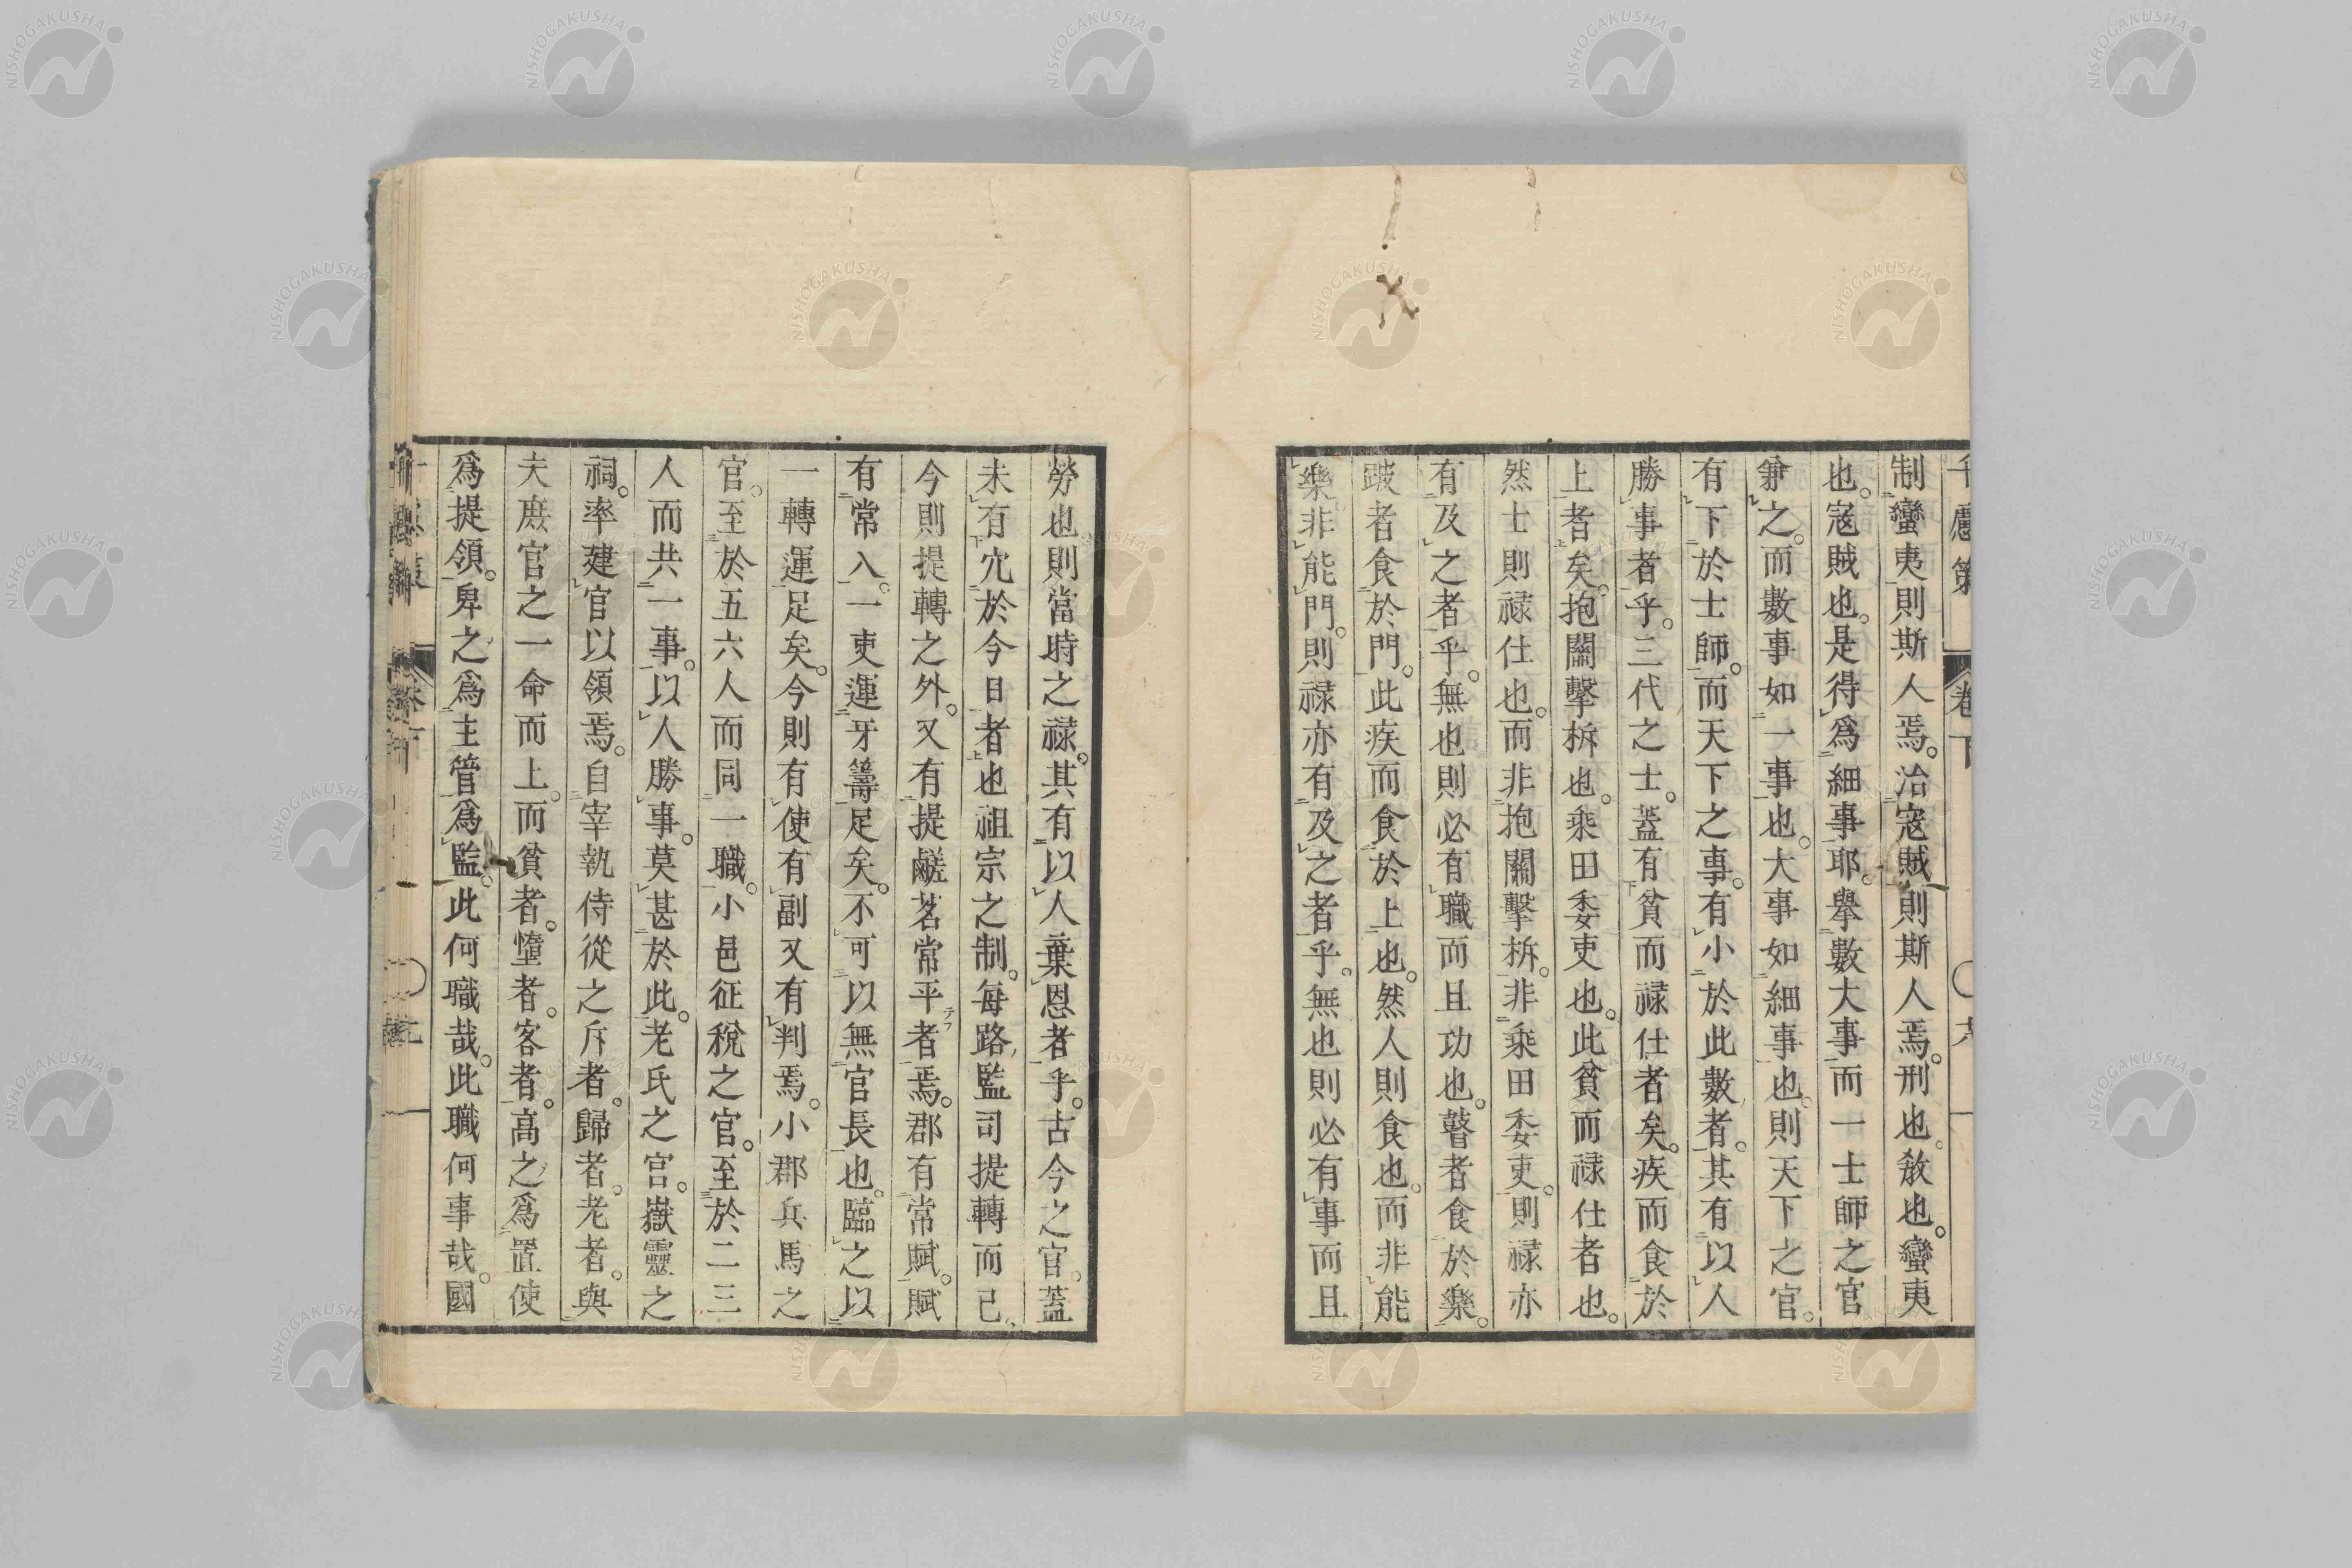 千慮策 卷下 〇 六
制蠻夷則斯人焉。治寇賊則斯人焉。刑也。敎也。蠻夷
也。寇賊也。是得爲細事耶。擧數大事而一士師之官
兼之。而數事如一事也。大事如細事也。則天下之官。
有下於士師。而天下之事。有小於此數者。其有以人
勝事者乎。三代之士。蓋有貧而祿仕者矣。疾而食於
上者矣。抱關擊柝也。乘田委吏也。此貧而祿仕者也。
然士則祿仕也。而非抱關擊柝。非乘田委吏。則祿亦
有及之者乎。無也則必有職而且功也。瞽者食於樂。
跛者食於門。此疾而食於上也。然人則食也。而非能
樂非能門。則祿亦有及之者乎。無也則必有事而且
勞也則當時之祿。其有以人棄恩者乎。古今之官。蓋
未有冗於今日者也祖宗之制。每路監司提轉而已、
今則提轉之外。又有提鹺茗常平者焉。郡有常賦。賦
有常入。一吏運牙籌足矣。不可以無官長也。臨之以
一轉運足矣。今則有使有副又有判焉。小郡兵馬之
官。至於五六人而同一職。小邑征稅之官。至於二三
人而共一事。以人勝事。莫甚於此。老氏之宮。嶽靈之
祠。率建官以領焉。自宰執侍從之斥者。歸者。老者。與
夫庶官之一命而上。而貧者。憧者。客者。高之爲置使
爲提領。卑之爲主管爲監。此何職哉。此職何事哉。國